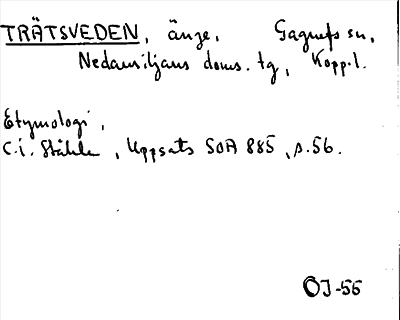 TRÄTSVEDEN, änge, Gagnefs sn,
Nedansiljans doms. tg, Kopp.l.
Etymologi,
C.i. Ståhle, Uppsats SOA 885, s.56.
OJ-56